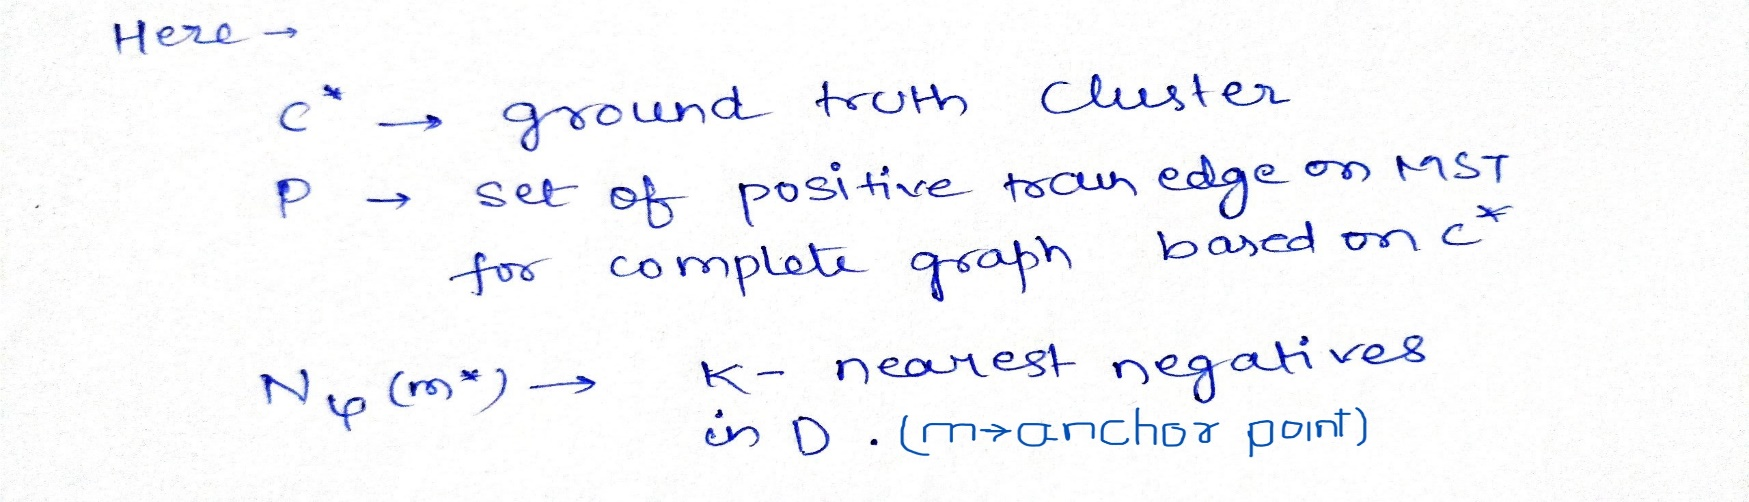 Here →
C* → ground truth Cluster
P → set of positive train edge on MST
for complete graph based on C*
Nφ (m*) → K- nearest negatives
in D . (m→anchor point)